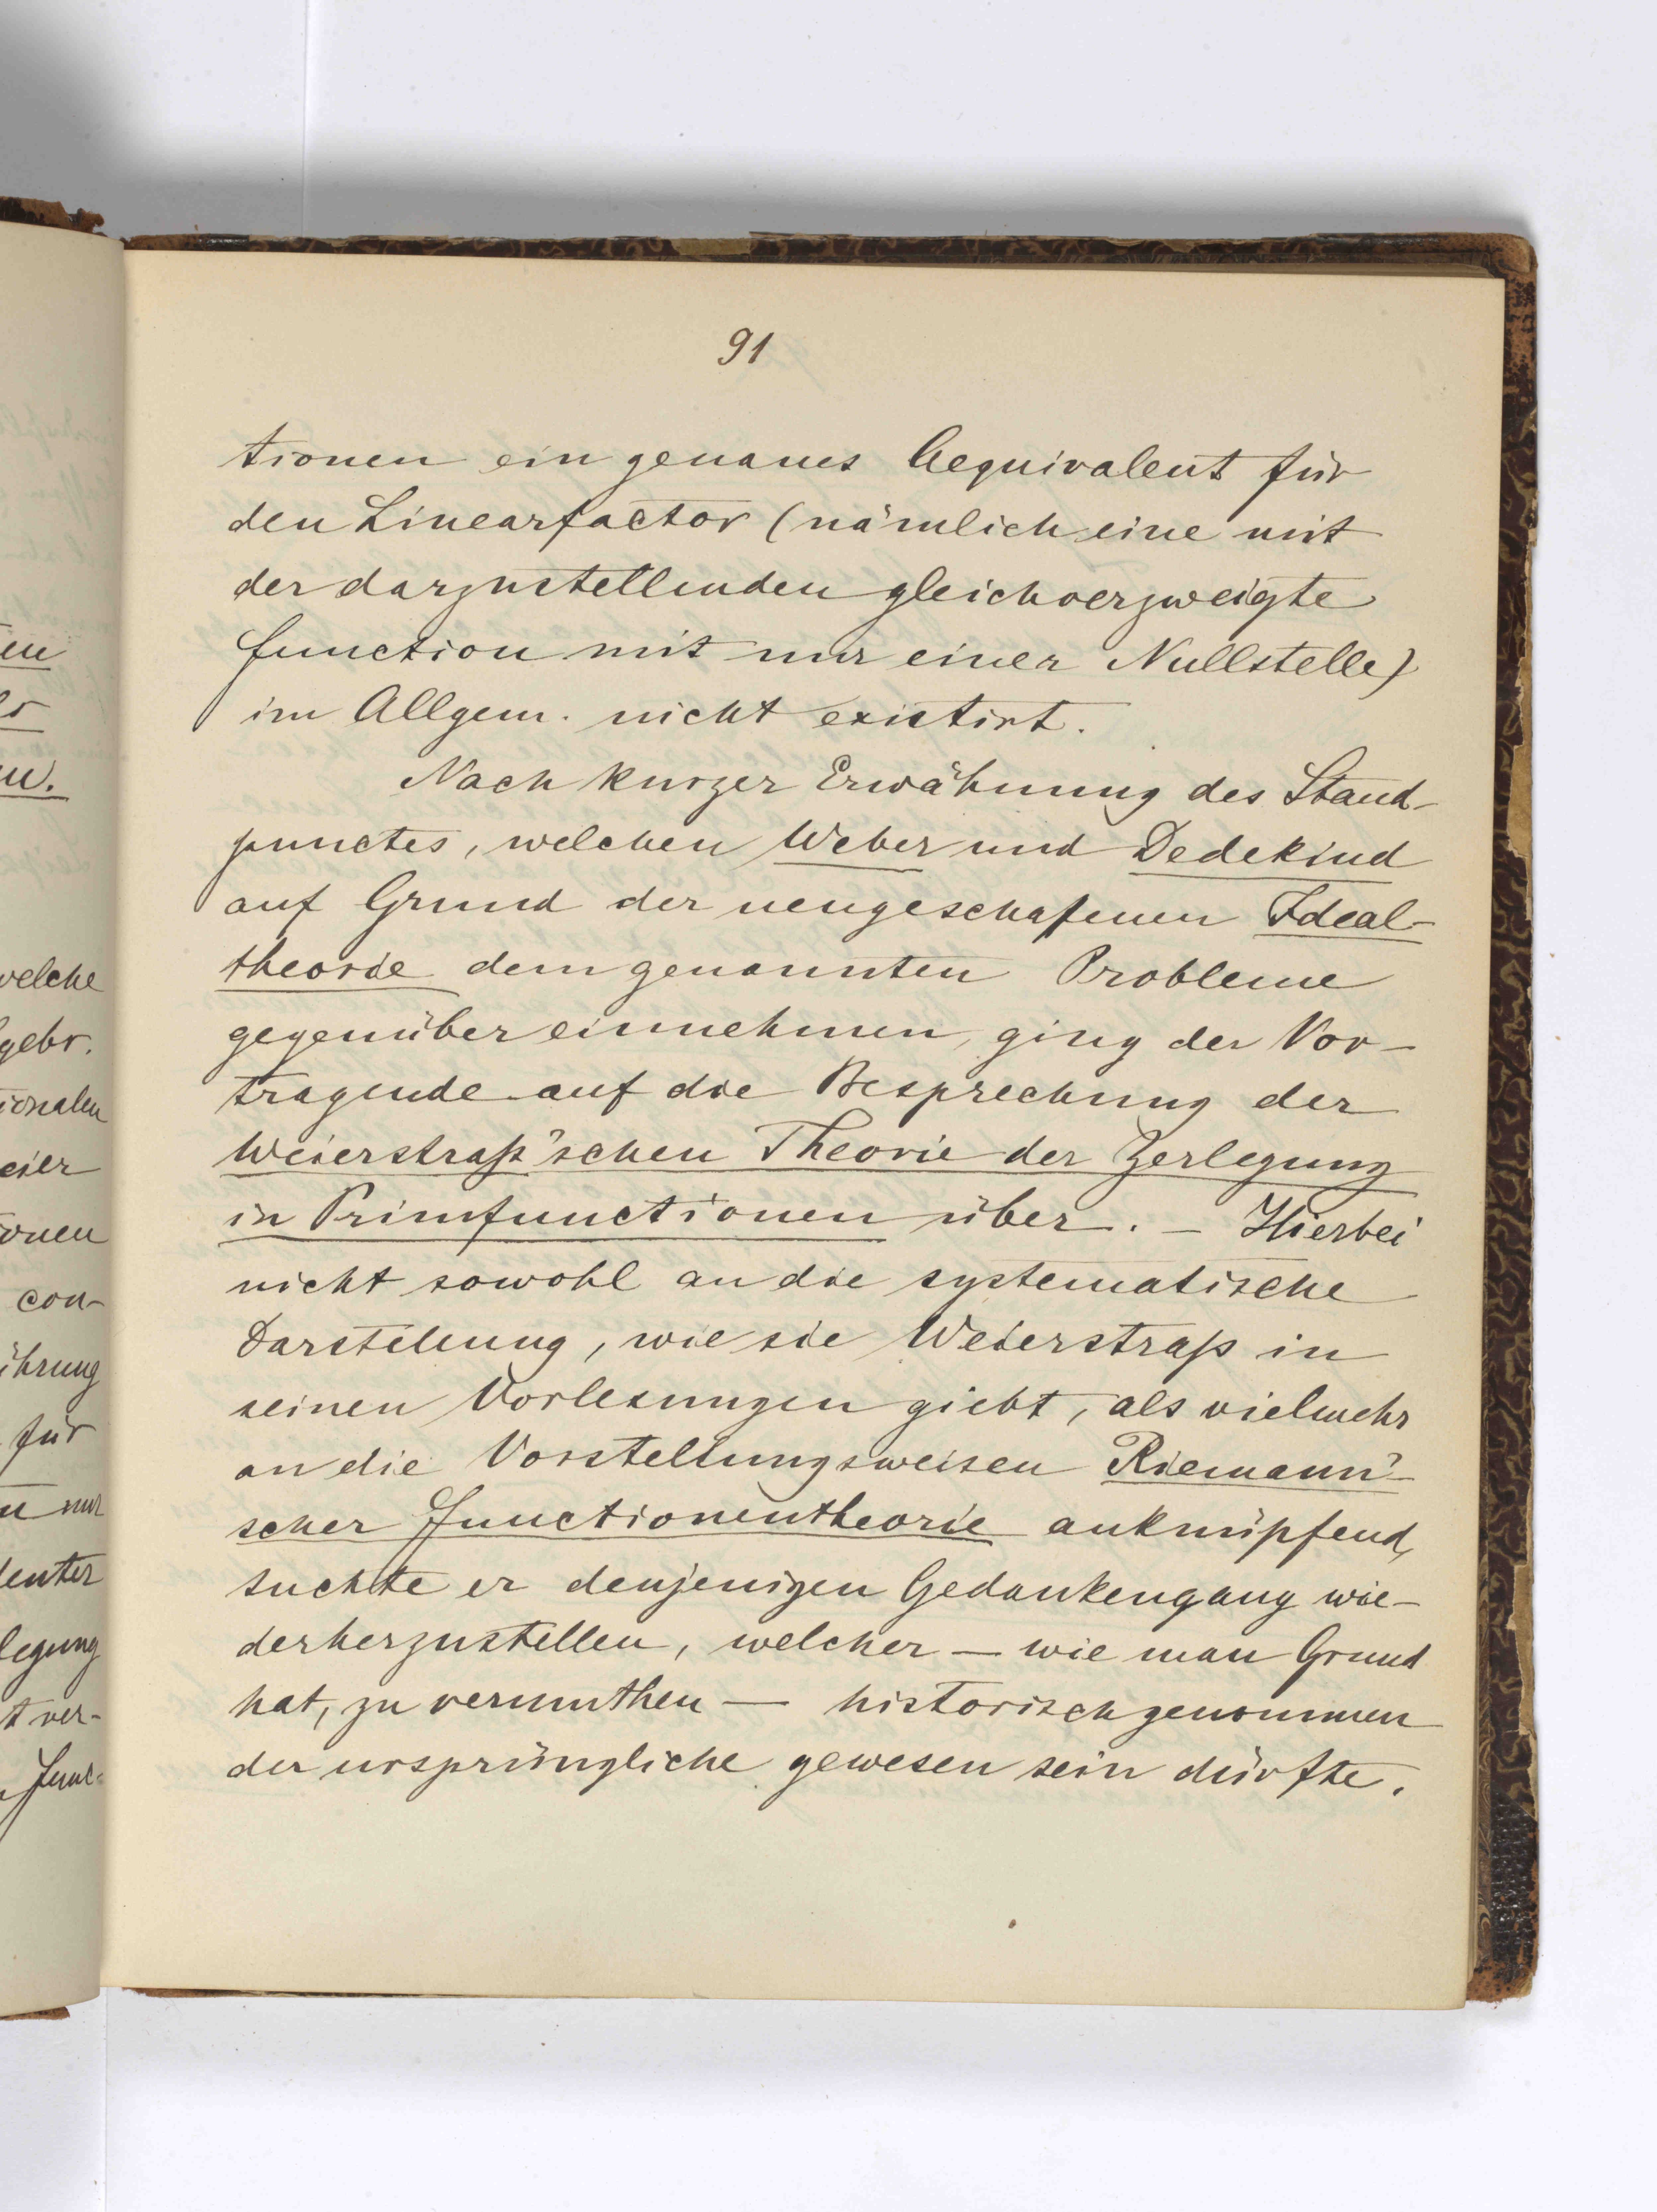 en
er
en.
welche
gebr.
ionalen
eier
onen
con-
ührung
für
nur
denter
legung
t ver-
Func-
91
tionen ein genaues Aequivalent für
den Linearfactor (nämlich eine mit
der darzustellenden gleichverzweigte
Function mit nur einer Nullstelle)
im Allgem. nicht existirt.
Nach kurzer Erwähnung des Stand-
punctes, welchen Weber und Dedekind
auf Grund der neugeschafenen Ideal-
theorie dem genannten Probleme
gegenüber einnehmen, ging der Vor-
tragende auf die Besprechung der
Weierstraß'schen Theorie der Zerlegung
in Primfunctionen über. – Hierbei
nicht sowohl an die systematische
Darstellung, wie sie Weierstraß in
seinen Vorlesungen giebt, als vielmehr
an die Vorstellungsweisen Riemann'-
scher Functionentheorie anknüpfend,
suchte er denjenigen Gedankengang wie-
derherzustellen, welcher – wie man Grund
hat, zu vermuthen – historisch genommen
der ursprüngliche gewesen sein dürfte.